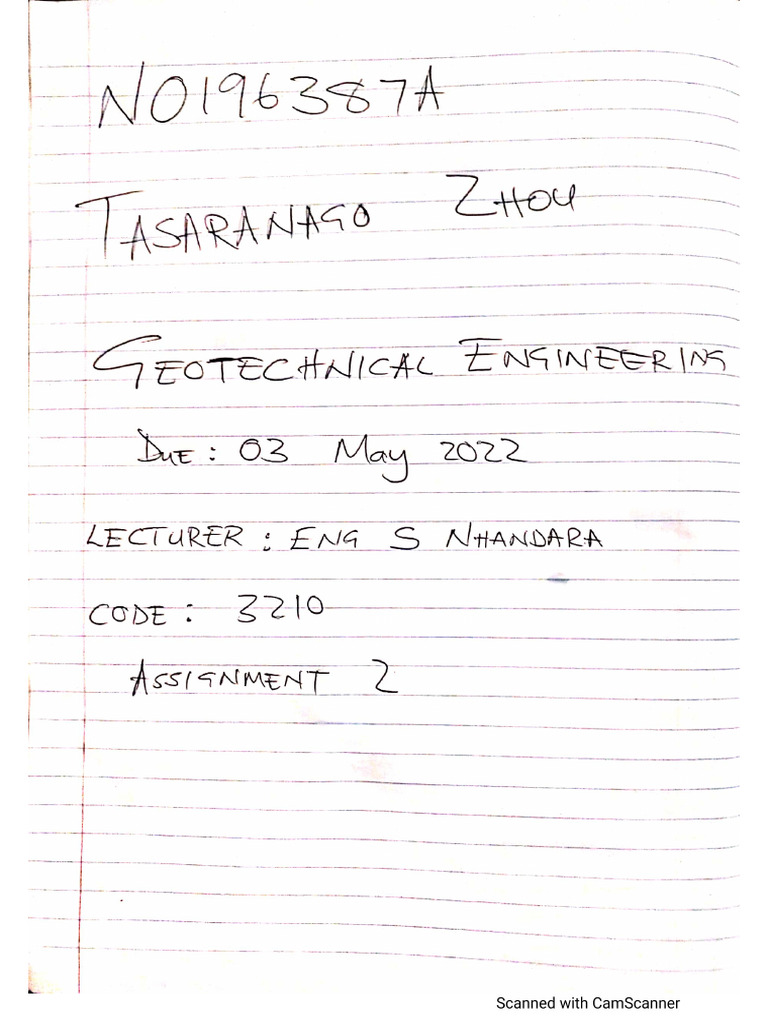 N0196387A
TASARANAGO ZHOU
GEOTECHNICAL ENGINEERING
DUE: 03 May 2022
LECTURER: ENG S NHANDARA
CODE: 3210
ASSIGNMENT 2
Scanned with CamScanner